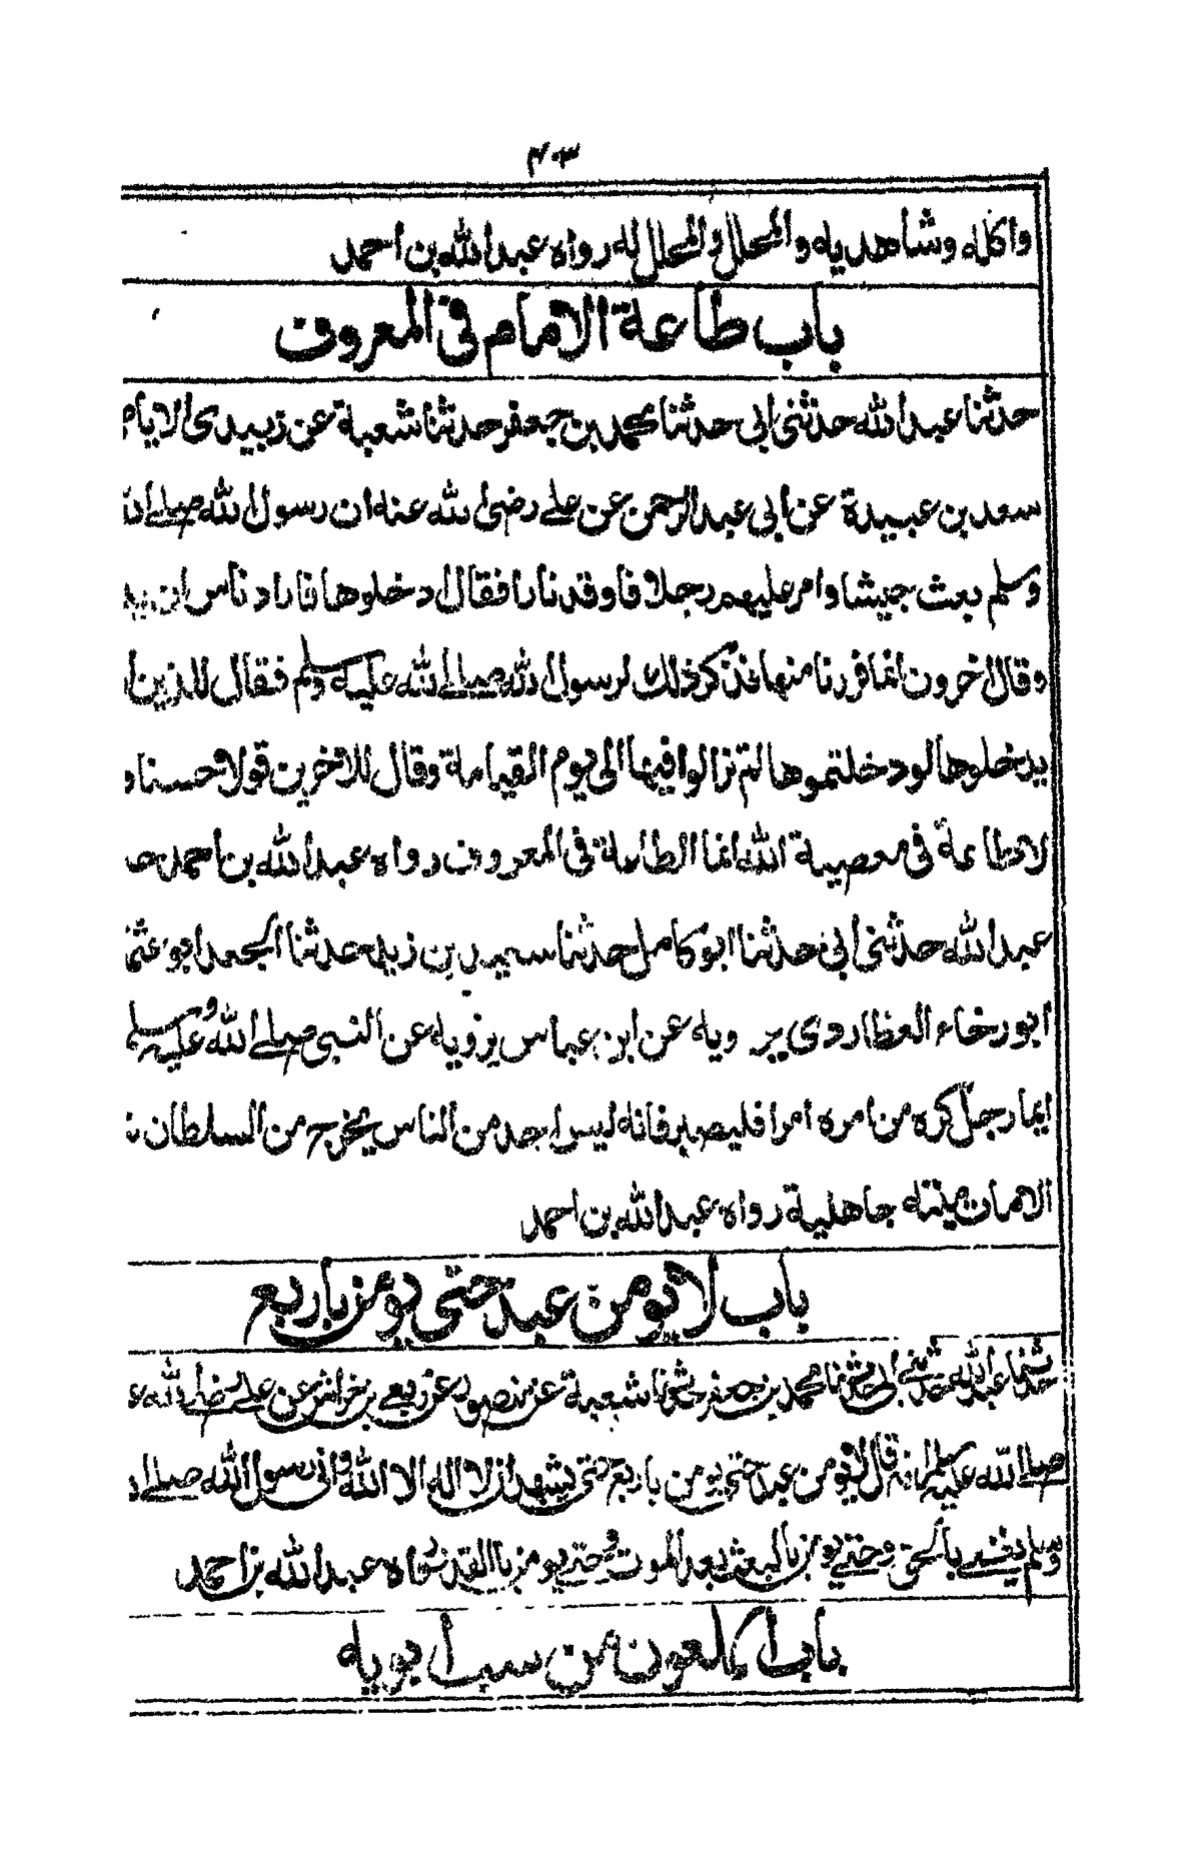 ٤٠٣
واكله وشاهديه والمحلل والمحلل له رواه عبد الله بن احمد
باب طاعة الامام فى المعروف
حدثنا عبد الله حدثنى ابى حدثنا محمد بن جعفر حدثنا شعبة عن زبيدى الايام
سعد بن عبيدة عن ابى عبد الرحمن عن على رضى الله عنه ان رسول الله صلى الله
وسلم بعث جيشا وامر عليهم رجلا فاوقد نارا فقال ادخلوها فاراد ناس ان يد
وقال اخرون انما فررنا منها فذكر ذلك لرسول الله صلى الله عليه وسلم فقال للذين ا
يدخلوها لو دخلتموها لم تزالوا فيها الى يوم القيامة وقال للاخرين قولا حسنا و
لا طاعة فى معصية الله انما الطاعة فى المعروف رواه عبد الله بن احمد حد
عبد الله حدثنى ابى حدثنا ابو كامل حدثنا سعيد بن زيد حدثنا الجعد ابو عثم
ابو رخاء العطاردى يرويه عن ابن عباس يرويه عن النبى صلى الله عليه وسلم
ايما رجل كره من امره امرا فليصبر فانه ليس احد من الناس يخرج من السلطان
الامات ميتة جاهلية رواه عبد الله بن احمد
باب لا يومن عبد حتى يومن باربع
حدثنا عبد الله حدثنى ابى حدثنا محمد بن جعفر حدثنا شعبة عن منصور عن ربعى بن خراش عن على رضى الله ع
صلى الله عليه وسلم انه قال لا يومن عبد حتى يومن باربع حتى يشهد ان لا اله الا الله وانى رسول الله صلى
وسلم بالحق وحتى يومن بالبعث بعد الموت وحتى يومن بالقدر رواه عبد الله بن احمد
باب الملعون من سب ابويه